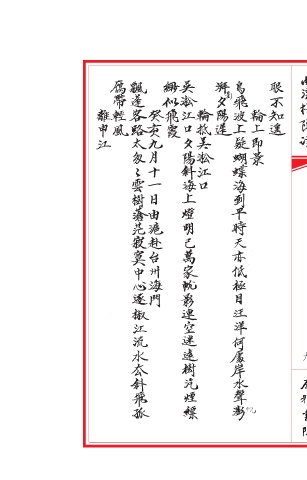 眼不知遙
輪上即景
鳥飛波上疑蝴蝶海到平時天亦低極目汪洋何處岸水聲澎
湃夕陽遲
輪抵吳淞江口
吳淞江口夕陽斜海上燈明已萬家帆影連空迷遠樹汽煙縹
緲似飛霞
癸亥九月十一日由滬赴台州海門
飄蓬客路太匆匆雲樹蒼茫寂寞中心逐椒江流水去斜飛孤
雁帶輕風
離申江